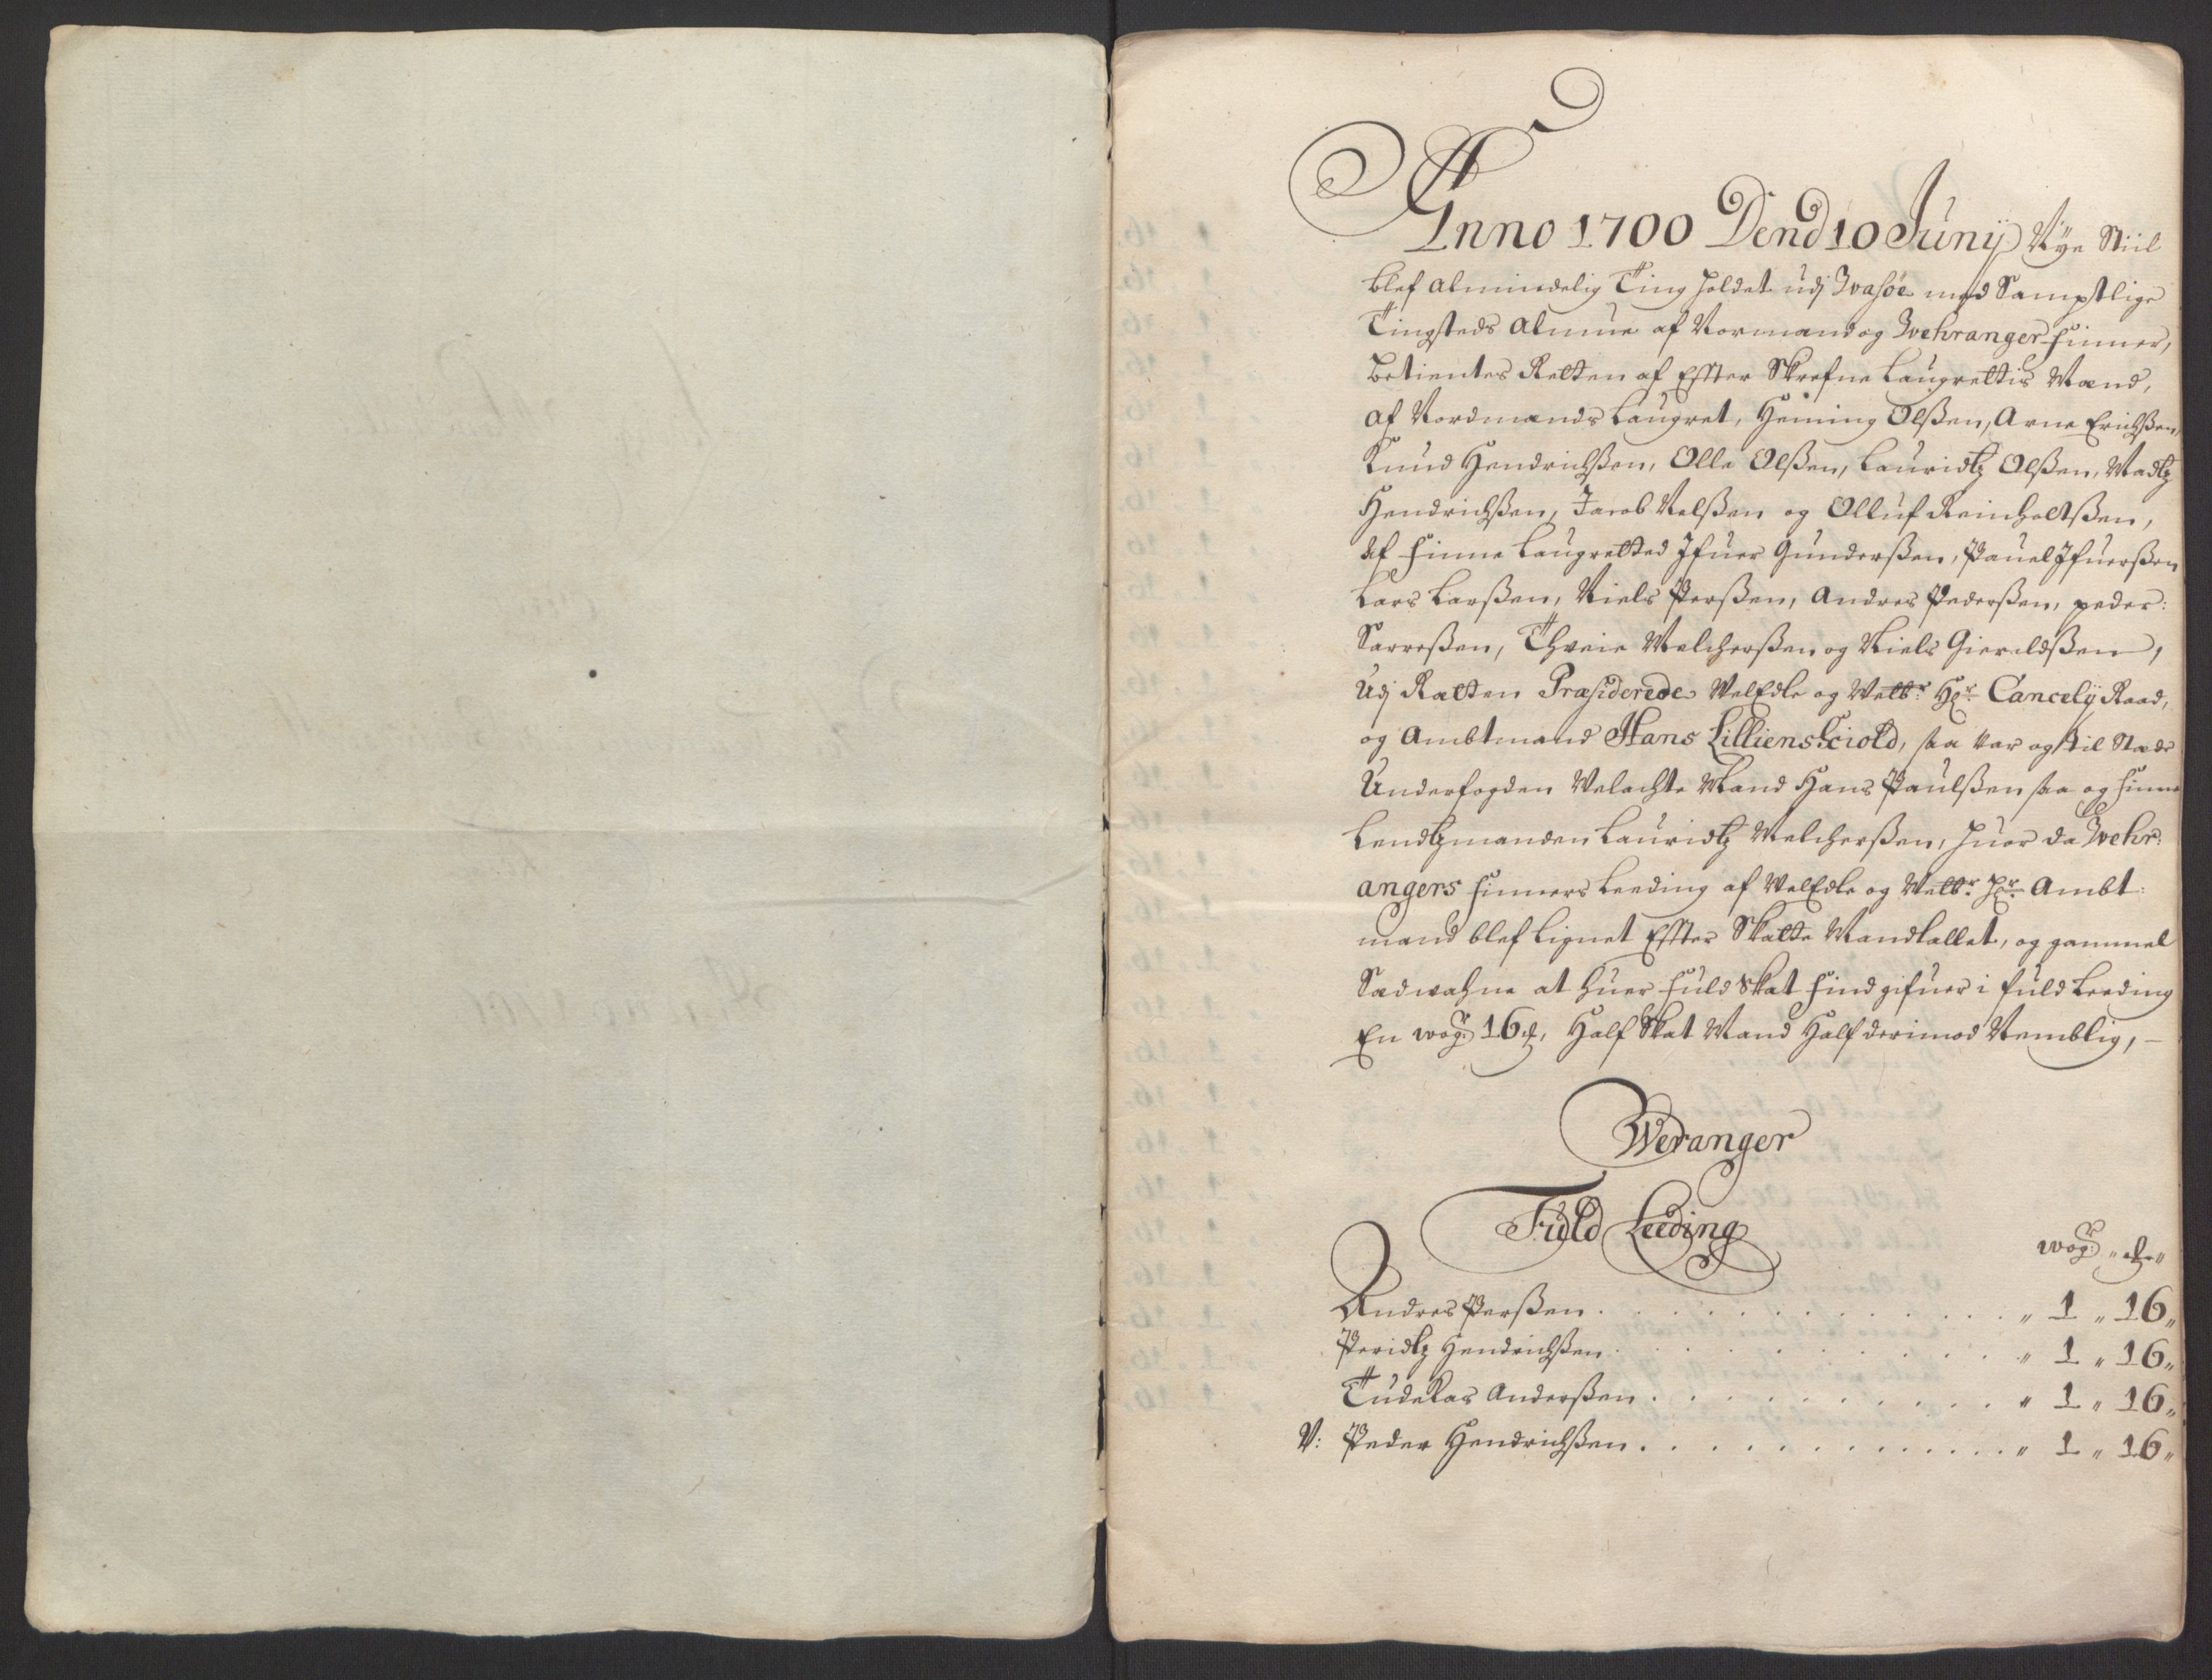 Anno 1700 Dend 10 Junij Nye Stiil
blef almindelig Ting holdet udj Wasøe med Samptlige
Tingsteds Almue af Normand og Wehranger finner,
betientes Retten af Effter Skrefne Laugrettis Mænd,
Af Nordmands Laugret, Heming Olßen, Arne Erichßen,
Knud Hendrichßen, Olle Olßen, Lauridtz Olßen, Madtz
Hendrichßen, Jacob Nelßen og Olluf Reinholtßen,
Af finne Laugretted Ifuer Gunderßen, Pauel Ifuerßen
Lars Larßen, Niels Perßen, Andres Pederßen, peder:
Sarreßen, Melcherßen og Niels Giereldßen,
Udj Rætten Præsiderede WelEdle og Welbr: Hr: Cancelij Raad,
og Ambtmand Hans Lilliensciold, saa var og til Stæde
Underfogden Velachte Mand Hans Paulßen saa og finne
Lendtzmanden Lauridtz Melcherßen, huor da Wehr:
angers finners Leeding af WelEdle og Welbr: Hr: Ambt:
mand blef lignet Effter Skatte Mandtallet, og gammel
Sædwahne at huer fuld Skat find gifuer i fuld Leeding
En wogr: 16 ℔, Half Skat Mand Half derimod Nemblig, -
Weranger
Fuld Leeding
wogr: " ℔ "
Andres Perßen . . . . . . . . . . " 1 " 16 "
Peridtz Hendrichßen . . . . . . . . . . " 1 " 16 "
Tudekas Anderßen . . . . . . . . . . " 1 " 16 "
V: Peder Hendrichßen . . . . . . . . . . " 1 " 16 "